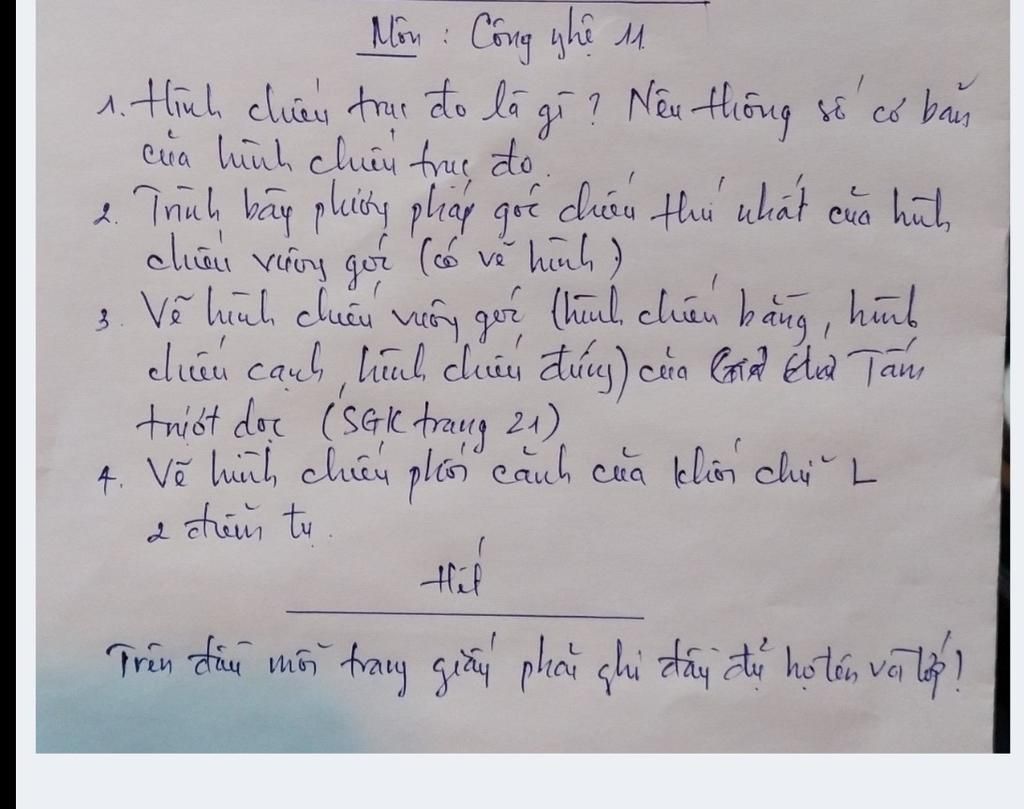 Môn : Công nghệ 11
1. Hình chiếu trục đo là gì ? Nêu thông số cơ bản
của hình chiếu trục đo.
2. Trình bày phương pháp góc chiếu thứ nhất của hình
chiếu vuông góc (có vẽ hình)
3. Vẽ hình chiếu vuông góc (hình chiếu bằng, hình
chiếu cạnh, hình chiếu đứng) của Tấm
trượt dọc (SGK trang 21)
4. Vẽ hình chiếu phối cảnh của khối chữ L
2 điểm tụ.
Hết
Trên đầu mỗi trang giấy phải ghi đầy đủ họ tên và lớp!